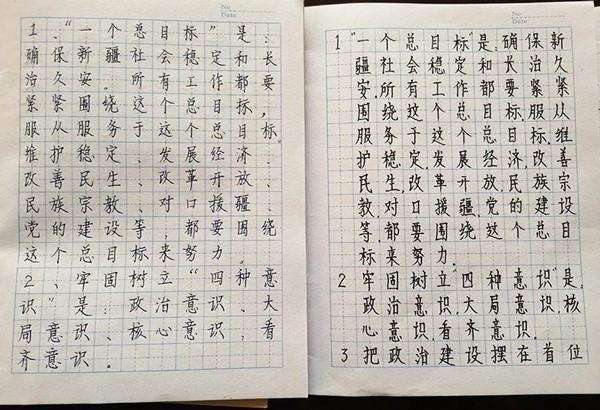 No
Date
1、"一个总目标"是:
确保新疆社会稳定和长
治久安。所有工作都要
紧紧围绕这个总目标,
服从服务于这个总目标。
维护稳定、发展经济、
改善民生、改革开放、
民族宗教、对口援疆、
党的建设等,都要围绕
这个总目标,来努力。
2、牢固树立"四种意
识"是:政治意识、大
局意识、核心意识,看
齐意识。
No
Date
1 "一个总目标"是:确保新
疆社会有稳定和长治久
安.所有工作都要紧紧
围绕这个总目标,服从
服务于这个总目标.维
护稳定,发展经济,改善
民生,改革开放,民族宗
教,对口援疆,党的建设
等,都要围绕这个总目
标来努力.
2 牢固树立"四种意识"是,
政治意识,大局意识,核
心意识,看齐意识.
3 把政治建设摆在首位